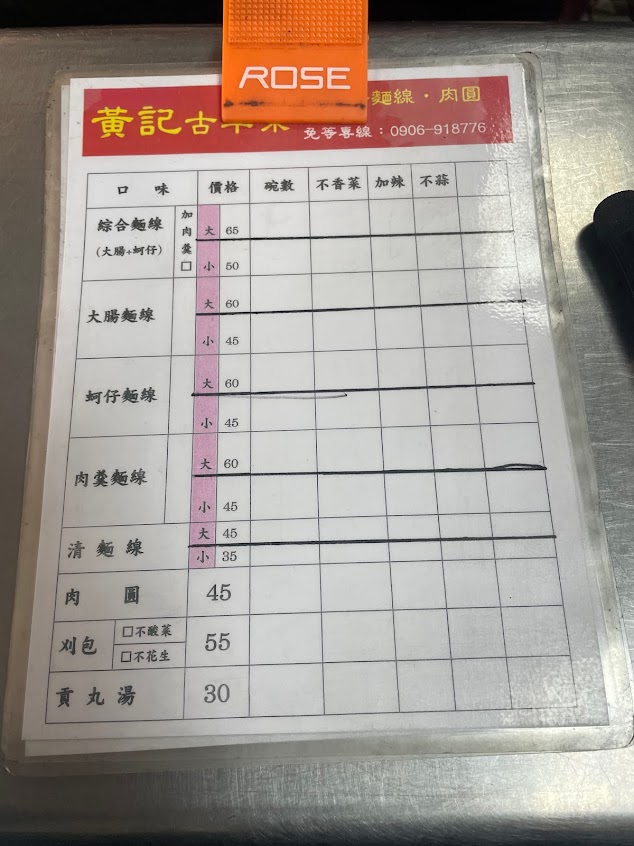 ROSE
黃記古早味 麵線·肉圓
免等專線：0906-918776
口 味 價格 碗數 不香菜 加辣 不蒜
綜合麵線 加肉羹□ 大 65
(大腸+蚵仔) 小 50
大腸麵線 大 60
小 45
蚵仔麵線 大 60
小 45
肉羹麵線 大 60
小 45
清麵線 大 45
小 35
肉 圓 45
刈包 □不酸菜 55
□不花生
貢丸湯 30